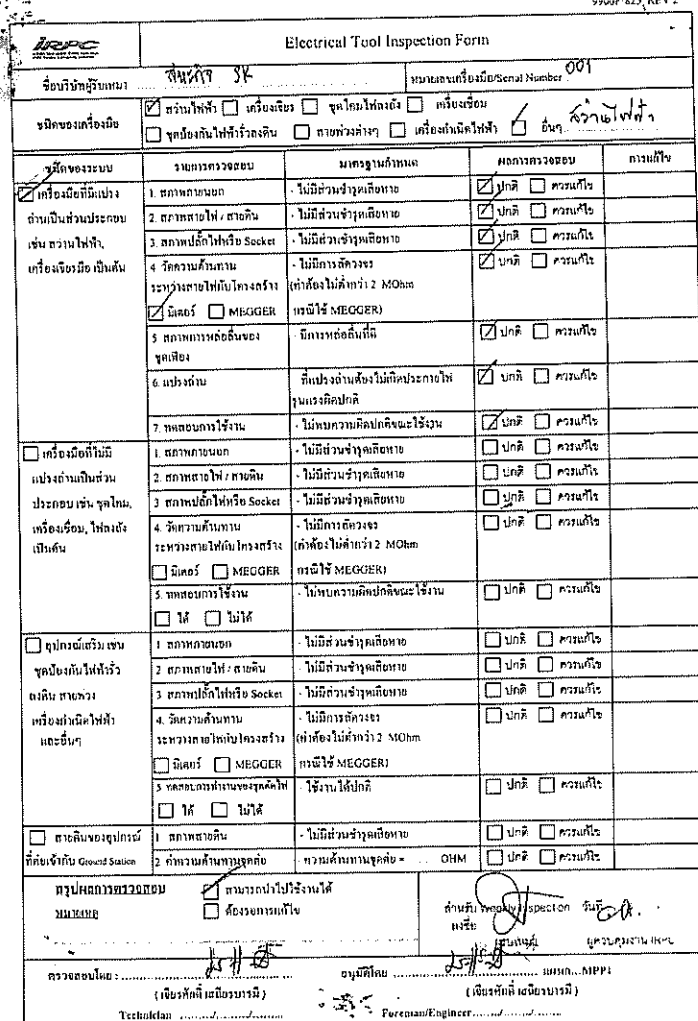 9900F-825, REV 2
IRPC
Electrical Tool Inspection Form
ชื่อบริษัทผู้รับเหมา SK
หมายเลขเครื่องมือ/Serial Number 001
ชนิดของเครื่องมือ
สว่านไฟฟ้า เครื่องเจียร ชุดโคมไฟลงถัง เครื่องเชื่อม
ชุดป้องกันไฟฟ้ารั่วลงดิน สายพ่วงต่างๆ เครื่องกำเนิดไฟฟ้า อื่นๆ สว่านไฟฟ้า
ชนิดของระบบ รายการตรวจสอบ มาตรฐานกำหนด ผลการตรวจสอบ การแก้ไข
เครื่องมือที่มีแปรง
ถ่านเป็นส่วนประกอบ
เช่น สว่านไฟฟ้า,
เครื่องเจียรมือ เป็นต้น
1. สภาพภายนอก - ไม่มีส่วนชำรุดเสียหาย ปกติ ควรแก้ไข
2. สภาพสายไฟ / สายดิน - ไม่มีส่วนชำรุดเสียหาย ปกติ ควรแก้ไข
3. สภาพปลั๊กไฟหรือ Socket - ไม่มีส่วนชำรุดเสียหาย ปกติ ควรแก้ไข
4 วัดความต้านทาน - ไม่มีการลัดวงจร ปกติ ควรแก้ไข
ระหว่างสายไฟกับโครงสร้าง (ค่าต้องไม่ต่ำกว่า 2 MOhm
มิเตอร์ MEGGER กรณีใช้ MEGGER)
5 สภาพการหล่อลื่นของ - มีการหล่อลื่นที่ดี ปกติ ควรแก้ไข
ชุดเฟือง
6. แปรงถ่าน ที่แปรงถ่านต้องไม่เกิดประกายไฟ ปกติ ควรแก้ไข
รุนแรงผิดปกติ
7. ทดสอบการใช้งาน - ไม่พบความผิดปกติขณะใช้งาน ปกติ ควรแก้ไข
เครื่องมือที่ไม่มี
แปรงถ่านเป็นส่วน
ประกอบ เช่น ชุดโคม,
เครื่องเชื่อม, ไฟลงถัง
เป็นต้น
1. สภาพภายนอก - ไม่มีส่วนชำรุดเสียหาย ปกติ ควรแก้ไข
2. สภาพสายไฟ / สายดิน - ไม่มีส่วนชำรุดเสียหาย ปกติ ควรแก้ไข
3 สภาพปลั๊กไฟหรือ Socket - ไม่มีส่วนชำรุดเสียหาย ปกติ ควรแก้ไข
4. วัดความต้านทาน - ไม่มีการลัดวงจร ปกติ ควรแก้ไข
ระหว่างสายไฟกับโครงสร้าง (ค่าต้องไม่ต่ำกว่า 2 MOhm
มิเตอร์ MEGGER กรณีใช้ MEGGER)
5. ทดสอบการใช้งาน - ไม่พบความผิดปกติขณะใช้งาน ปกติ ควรแก้ไข
ได้ ไม่ได้
อุปกรณ์เสริม เช่น
ชุดป้องกันไฟฟ้ารั่ว
ลงดิน สายพ่วง
เครื่องกำเนิดไฟฟ้า
และอื่นๆ
1 สภาพภายนอก - ไม่มีส่วนชำรุดเสียหาย ปกติ ควรแก้ไข
2 สภาพสายไฟ / สายดิน - ไม่มีส่วนชำรุดเสียหาย ปกติ ควรแก้ไข
3 สภาพปลั๊กไฟหรือ Socket - ไม่มีส่วนชำรุดเสียหาย ปกติ ควรแก้ไข
4. วัดความต้านทาน - ไม่มีการลัดวงจร ปกติ ควรแก้ไข
ระหว่างสายไฟกับโครงสร้าง (ค่าต้องไม่ต่ำกว่า 2 MOhm
มิเตอร์ MEGGER กรณีใช้ MEGGER)
5 ทดสอบการทำงานของชุดตัดไฟ - ใช้งานได้ปกติ ปกติ ควรแก้ไข
ได้ ไม่ได้
สายดินของอุปกรณ์
ที่ต่อเข้ากับ Ground Station
1 สภาพสายดิน - ไม่มีส่วนชำรุดเสียหาย ปกติ ควรแก้ไข
2 ค่าความต้านทานจุดต่อ - ความต้านทานจุดต่อ = .... OHM ปกติ ควรแก้ไข
สรุปผลการตรวจสอบ สามารถนำไปใช้งานได้
หมายเหตุ ต้องรอการแก้ไข
สำหรับ Weekly Inspection วันที่
ลงชื่อ
ผู้ควบคุมงาน IRPC
ตรวจสอบโดย : ........ อนุมัติโดย ........ แผนก...MPP1
( เจียรศักดิ์ เสถียรบารมี ) ( เจียรศักดิ์ เสถียรบารมี )
Technician ......../......../........ Foreman/Engineer......../......../........